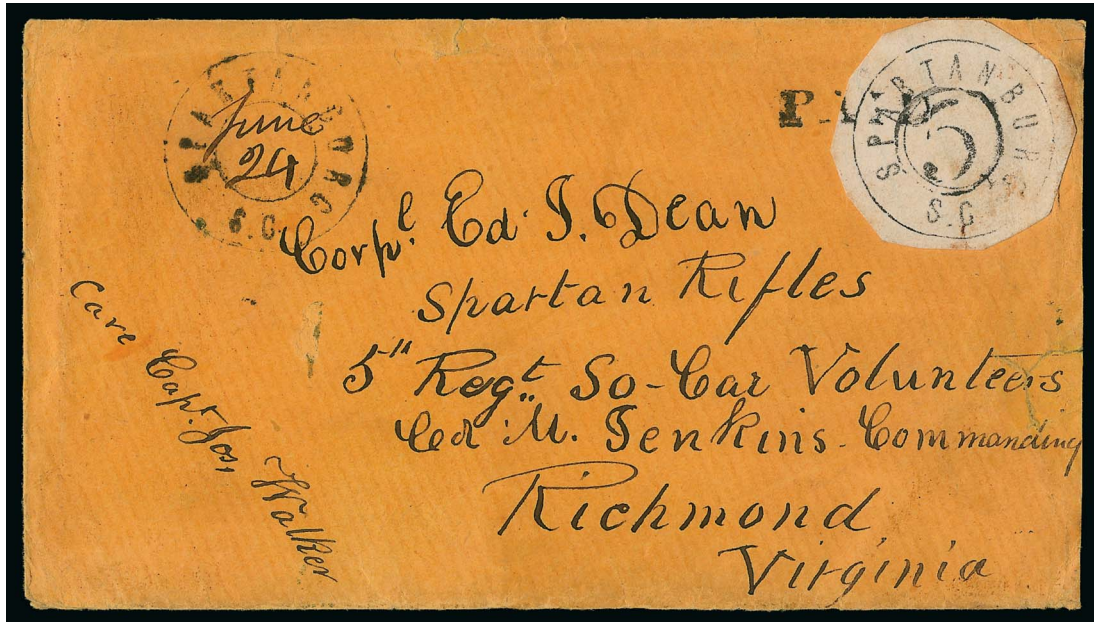 SPARTANBURG
June
24
S.C.
SPARTANBUR
5
S.C
Corpl. Ed. J. Dean
Spartan Rifles
5" Regt. So-Car Volunteers
Col M. Jenkins-Commanding
Richmond
Virginia
Care Capt. Jos. Walker